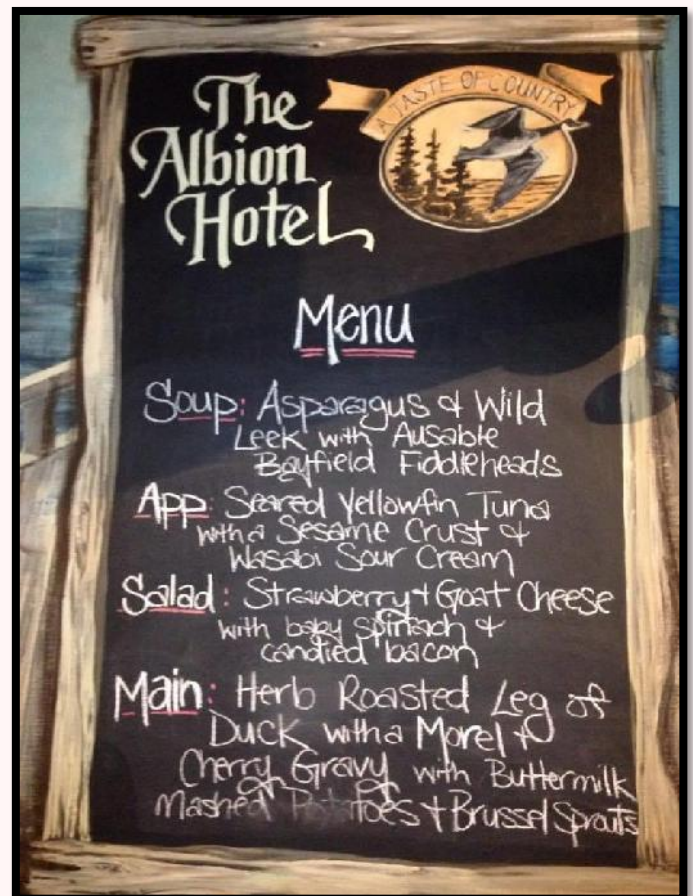 The
Albion
Hotel
A TASTE OF COUNTRY
Menu
Soup: Asparagus & Wild
Leek with Ausable
Bayfield Fiddleheads
App: Seared Yellowfin Tuna
with a Sesame Crust &
Wasabi Sour Cream
Salad: Strawberry & Goat Cheese
with baby spinach &
candied bacon
Main: Herb Roasted Leg of
Duck with a Morel &
Cherry Gravy with Buttermilk
Mashed Potatoes & Brussel Sprouts